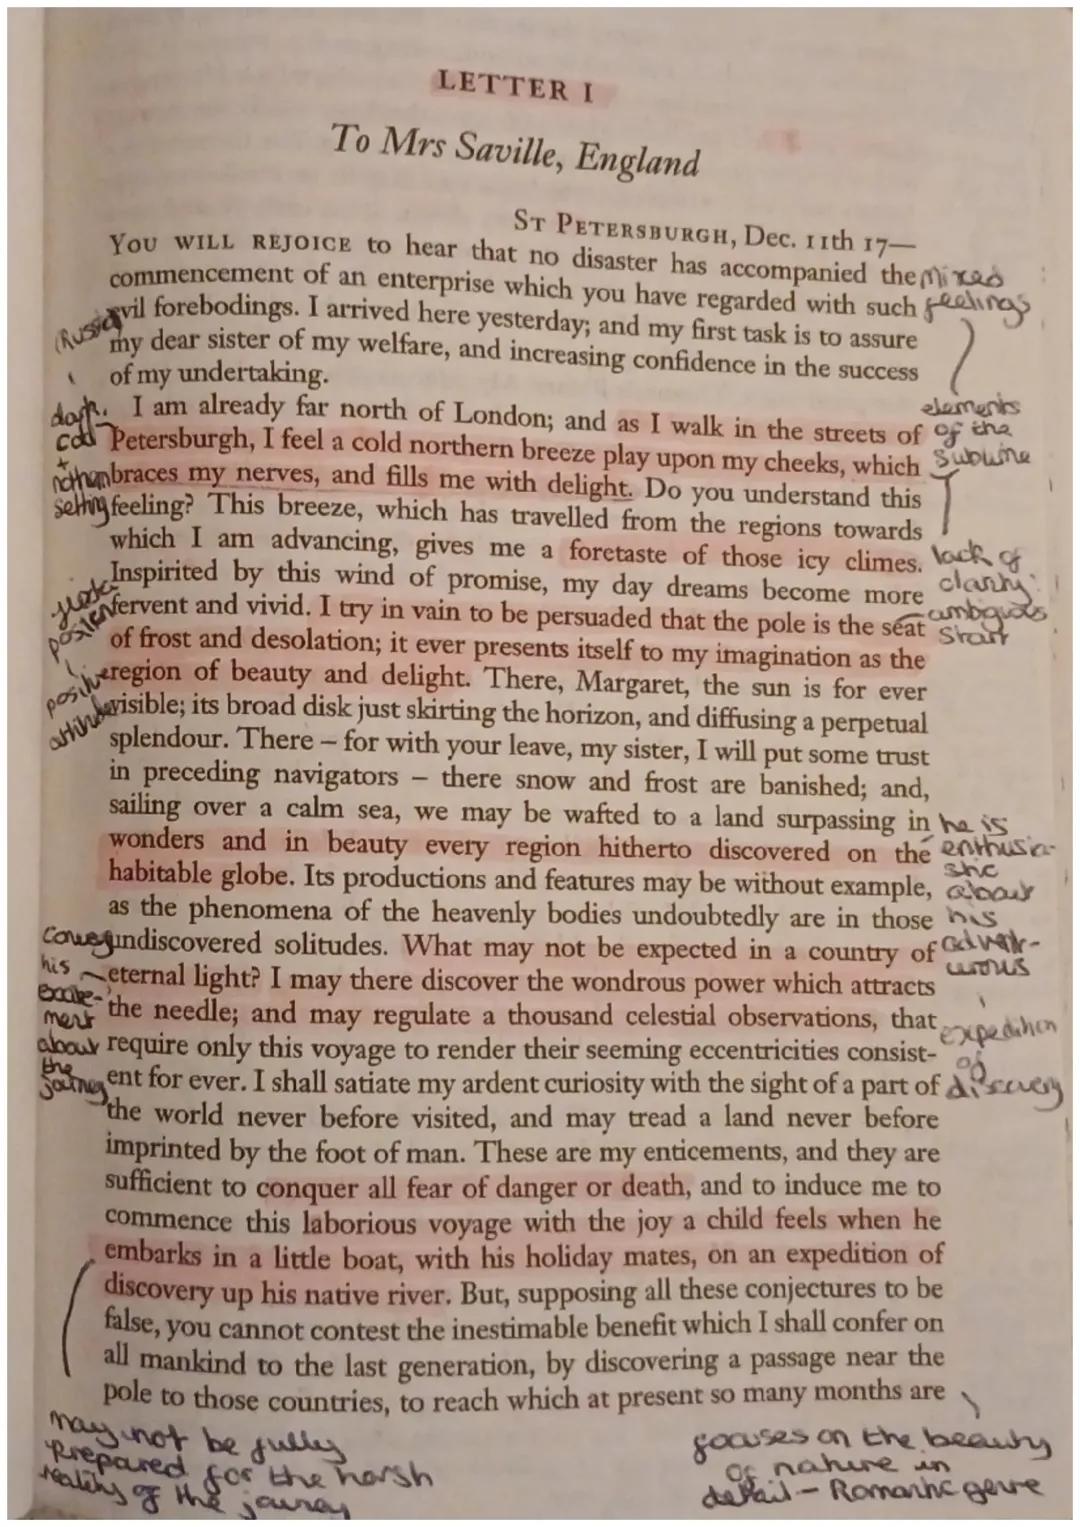 LETTER I
To Mrs Saville, England
ST PETERSBURGH, Dec. 11th 17—
YOU WILL REJOICE to hear that no disaster has accompanied the
commencement of an enterprise which you have regarded with such
evil forebodings. I arrived here yesterday; and my first task is to assure
my dear sister of my welfare, and increasing confidence in the success
of my undertaking.
I am already far north of London; and as I walk in the streets of
Petersburgh, I feel a cold northern breeze play upon my cheeks, which
braces my nerves, and fills me with delight. Do you understand this
feeling? This breeze, which has travelled from the regions towards
which I am advancing, gives me a foretaste of those icy climes.
Inspirited by this wind of promise, my day dreams become more
fervent and vivid. I try in vain to be persuaded that the pole is the seat
of frost and desolation; it ever presents itself to my imagination as the
region of beauty and delight. There, Margaret, the sun is for ever
visible; its broad disk just skirting the horizon, and diffusing a perpetual
splendour. There – for with your leave, my sister, I will put some trust
in preceding navigators – there snow and frost are banished; and,
sailing over a calm sea, we may be wafted to a land surpassing in
wonders and in beauty every region hitherto discovered on the
habitable globe. Its productions and features may be without example,
as the phenomena of the heavenly bodies undoubtedly are in those
undiscovered solitudes. What may not be expected in a country of
eternal light? I may there discover the wondrous power which attracts
the needle; and may regulate a thousand celestial observations, that
require only this voyage to render their seeming eccentricities consist-
ent for ever. I shall satiate my ardent curiosity with the sight of a part of
the world never before visited, and may tread a land never before
imprinted by the foot of man. These are my enticements, and they are
sufficient to conquer all fear of danger or death, and to induce me to
commence this laborious voyage with the joy a child feels when he
embarks in a little boat, with his holiday mates, on an expedition of
discovery up his native river. But, supposing all these conjectures to be
false, you cannot contest the inestimable benefit which I shall confer on
all mankind to the last generation, by discovering a passage near the
pole to those countries, to reach which at present so many months are
Mixed
feelings
elements
of the
Sublime
lack of
clarity:
ambiguous
start
he is
enthusia-
stic
about
his
expedition
of
discovery
(Russia
dark,
cold
+
setting
positive
attitude
conveys
his
excite-
ment
about
the
journey
may not be fully
prepared for the harsh
reality of the journey
focuses on the beauty
of nature in
detail – Romantic genre